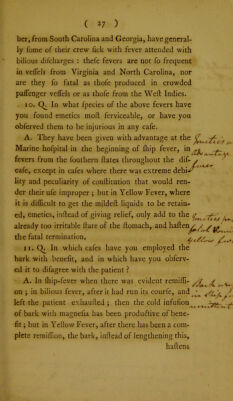 ( 27 )
ber, from South Carolina and Georgia, have general-
ly some of their crew sick with fever attended with
bilious discharges : these fevers are not so frequent
in vessels from Virginia and North Carolina, nor
are they so fatal as those produced in crowded
passenger vessels or as those from the West Indies.
10. Q. In what species of the above fevers have
you found emetics most serviceable, or have you
observed them to be injurious in any case.
A. They have been given with advantage at the
Marine hospital in the beginning of ship fever, in
fevers from the southern states throughout the dis-
ease, except in cases where there was extreme debi-
lity and peculiarity of constitution that would ren-
der their use improper ; but in Yellow Fever, where
it is difficult to get the mildest liquids to be retain-
ed, emetics, instead of giving relief, only add to the
already too irritable state of the stomach, and hasten
the fatal termination.
11. Q. In which cases have you employed the
bark with benefit, and in which have you observ-
ed it to disagree with the patient ?
A. In ship-fever when there was evident remissi-
on ; in bilious fever, after it had run its course, and
left the patient exhausted ; then the cold infusion
of bark with magnesia has been productive of bene-
fit ; but in Yellow Fever, after there has been a com-
plete remission, the bark, instead of lengthening this,
hastens